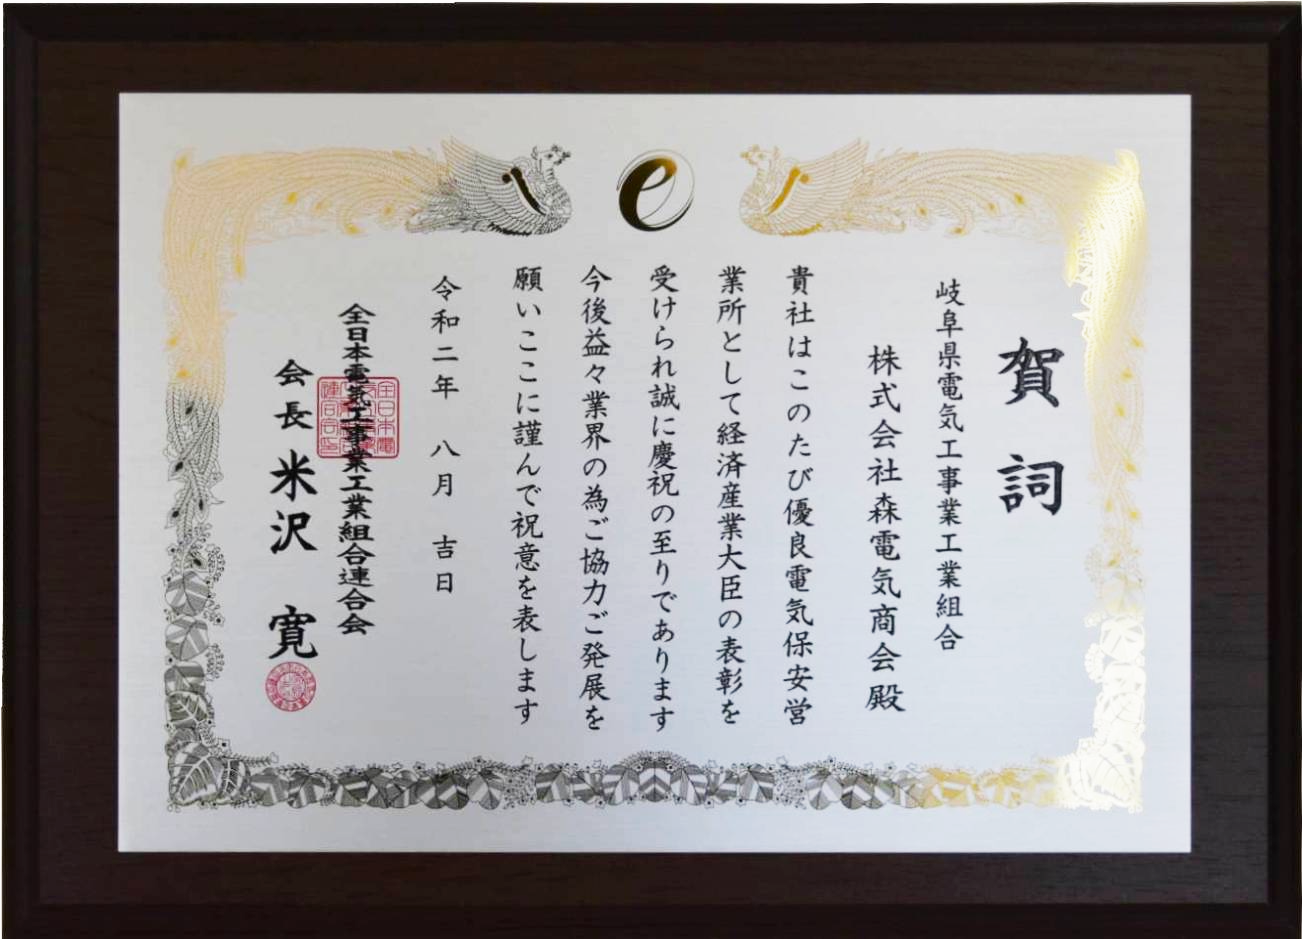 賀詞
岐阜県電気工事業工業組合
株式会社森電気商会殿
貴社はこのたび優良電気保安営
業所として経済産業大臣の表彰を
受けられ誠に慶祝の至りであります
今後益々業界の為ご協力ご発展を
願いここに謹んで祝意を表します
令和二年 八月 吉日
全日本電気工事業工業組合連合会
会長 米沢 寛